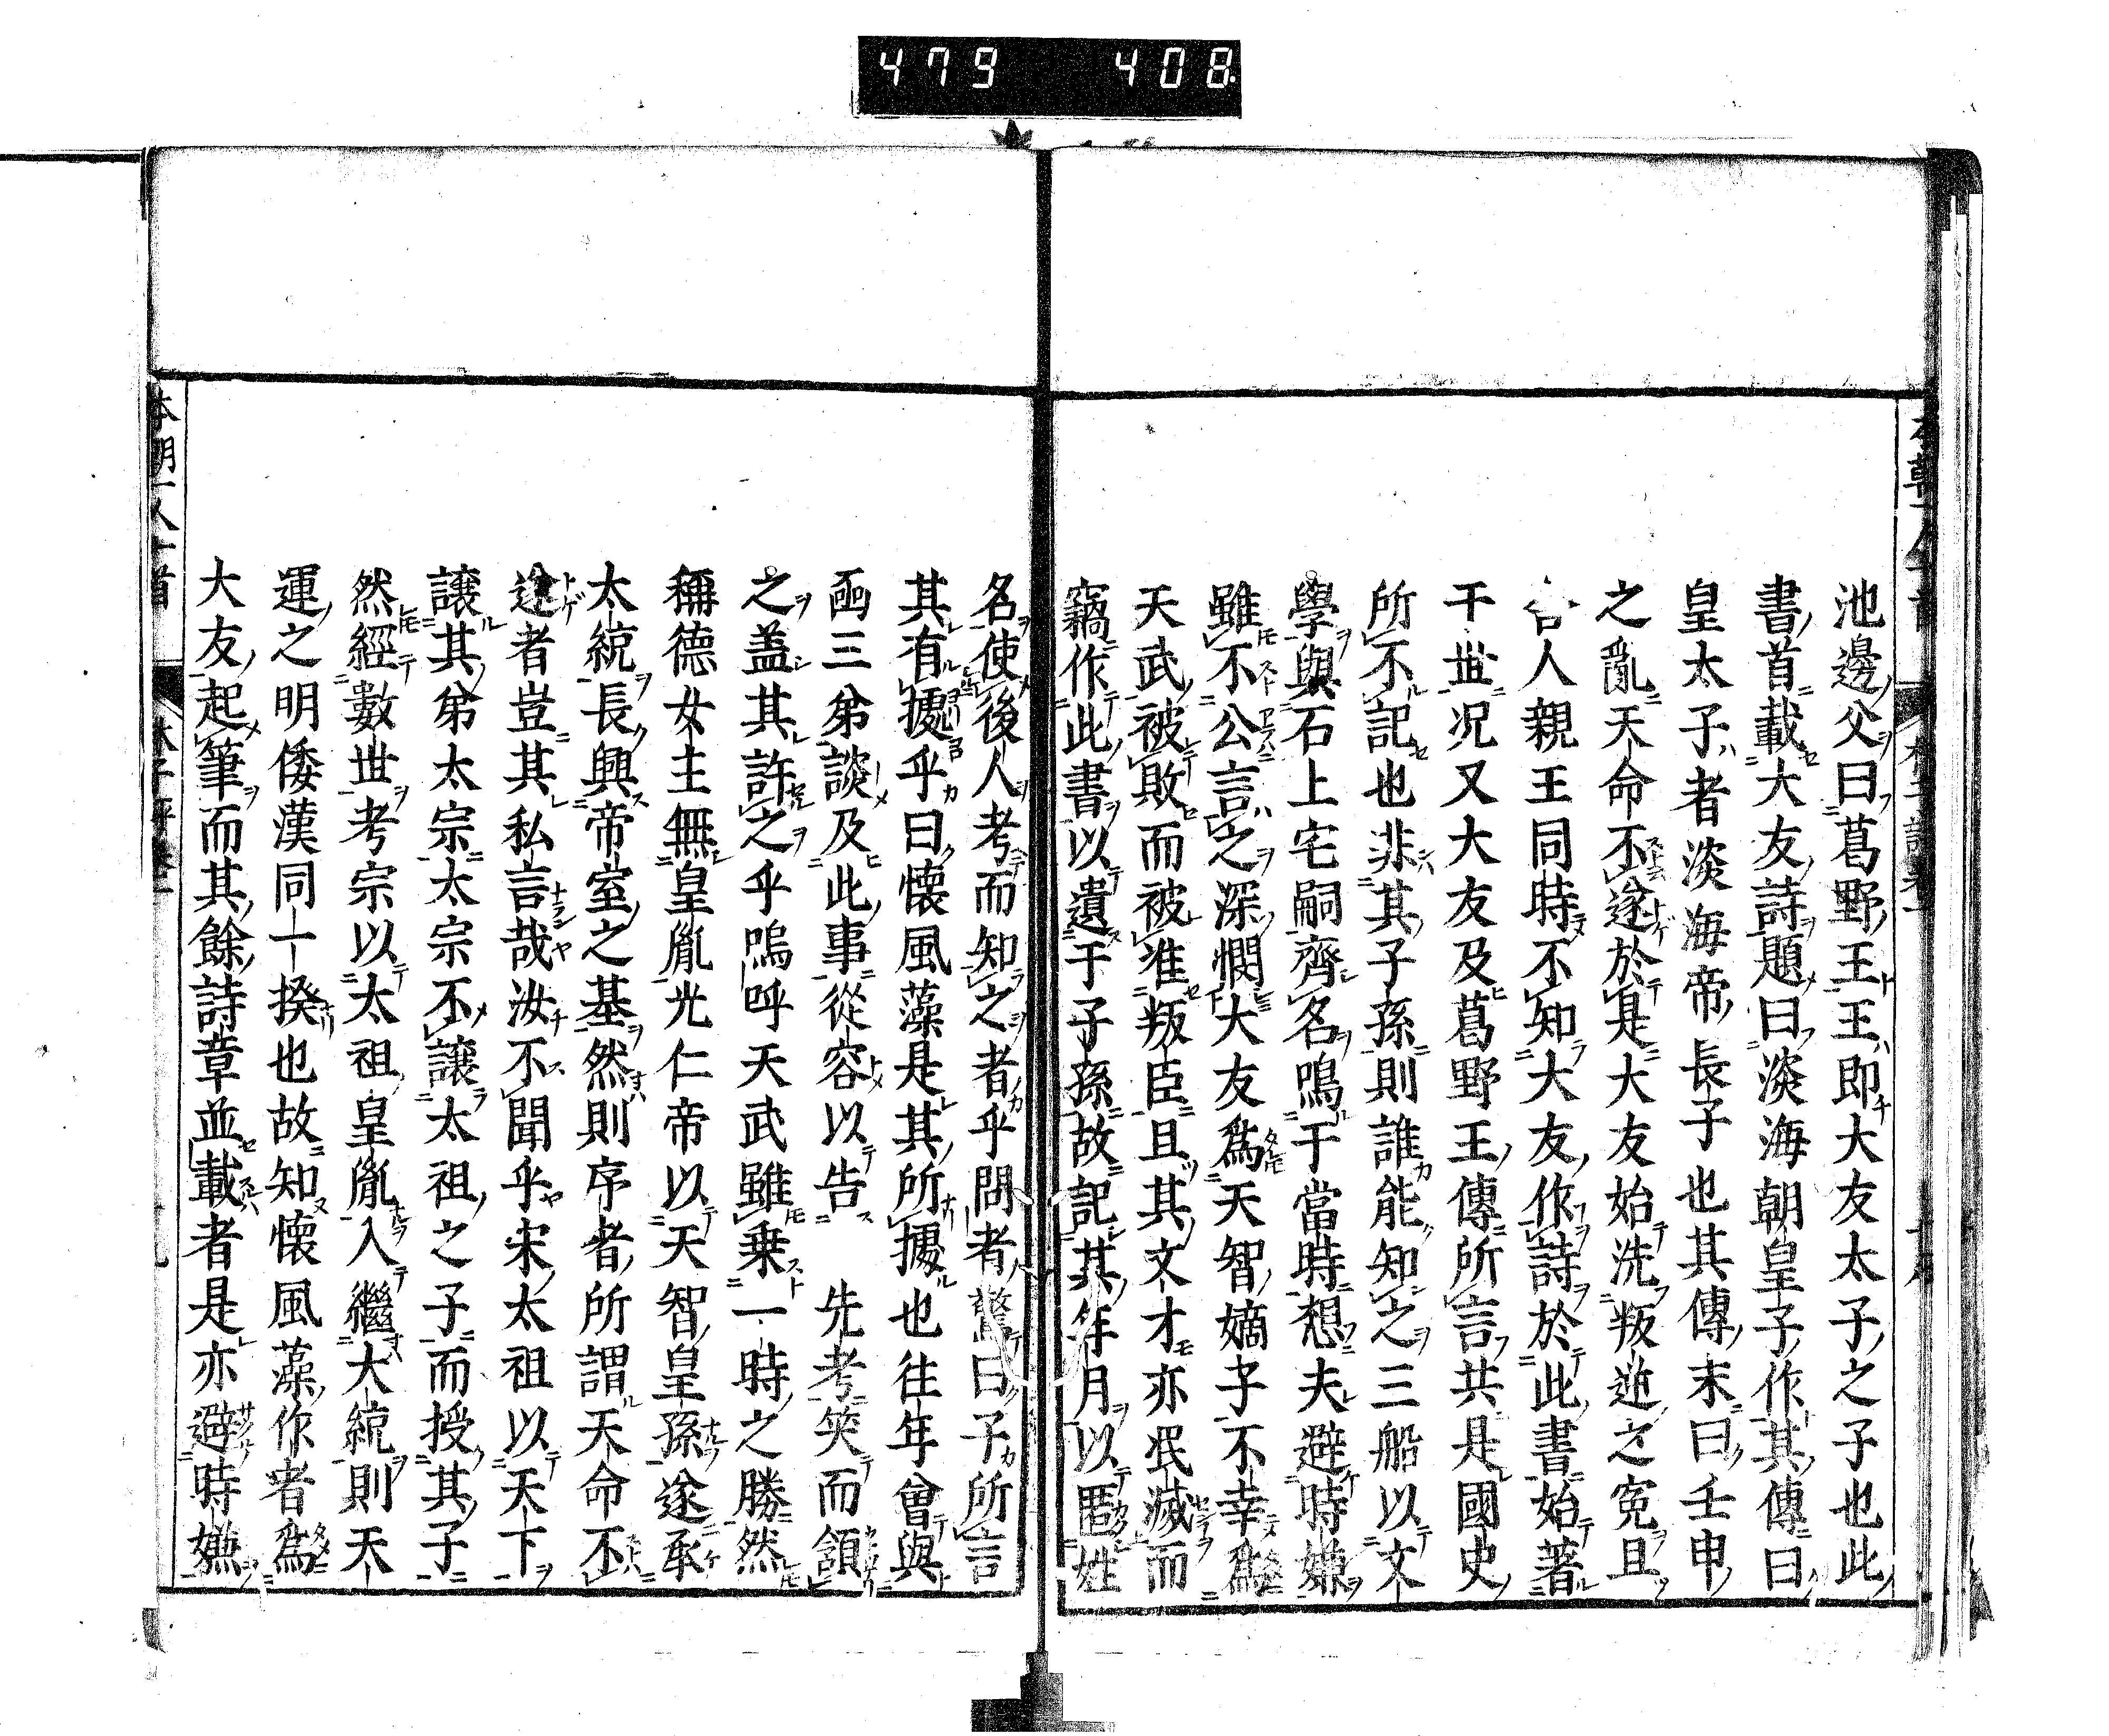 479 408
池邊父曰葛野王王即大友太子之子也此
書首載大友詩題曰淡海朝皇子作其傳曰
皇太子者淡海帝長子也其傳末曰壬申
之亂天命不遂於是大友始洗叛逆之寃且
舍人親王同時不知大友作詩於此書始著
于世况又大友及葛野王傳所言共是國史
所不記也非其子孫則誰能知之三船以文
學與石上宅嗣齊名鳴于當時想夫避時嫌
雖不公言之深憫大友爲天智嫡子不幸爲
天武被敗而被准叛臣且其文才亦泯滅而
竊作此書以遺于子孫故記其年月以匿姓
名使後人考而知之者乎問者驚曰子所言
其有據乎曰懷風藻是其所據也往年曾與
函三弟談及此事從容以告 先考笑而頷
之蓋其許之乎嗚呼天武雖乗一時之勝然
稱德女主無皇胤光仁帝以天智皇孫遂承
太統長興帝室之基然則序者所謂天命不
遂者豈其私言哉汝不聞乎宋太祖以天下
讓其弟太宗太宗不讓太祖之子而授其子
然經數世考宗以太祖皇胤入繼大統則天
運之明倭漢同一揆也故知懷風藻作者爲
大友起筆而其餘詩章並載者是亦避時嫌